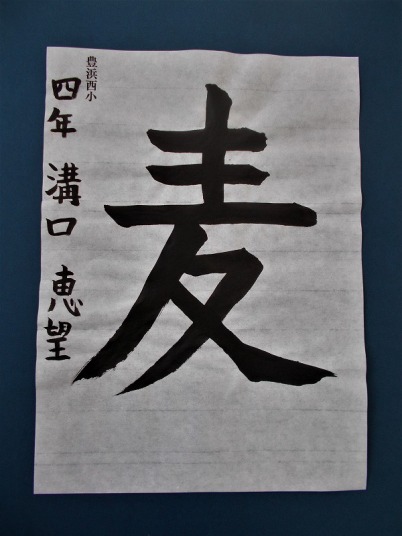 麦
豊浜西小
四年 溝口 恵望